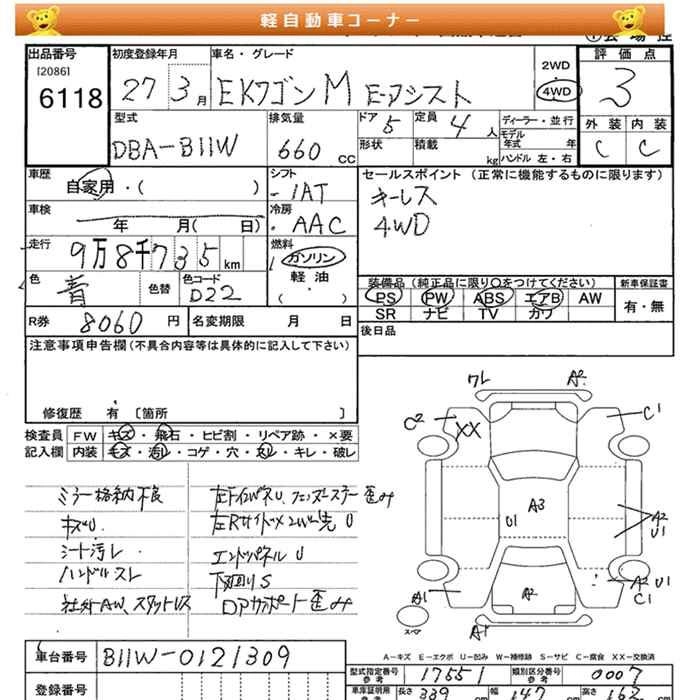 軽自動車コーナー
出品番号 初度登録年月 車名・グレード 2WD 評価点
[2086] 6118 27 3月 EKワゴン M E-アシスト 4WD 3
型式 排気量 ドア 定員 ディーラー・並行 外装 内装
DBA-B11W 660 CC 5 4人 モデル年式 年 C C
形状 積載 kg ハンドル 左・右
車歴 シフト セールスポイント (正常に機能するものに限ります)
自家用・( ) -1AT キーレス
車検 冷房 4WD
年 月( 日) AAC
走行 燃料
9万8千735km ガソリン
色 色替 色コード 軽・油 装備品 (純正品に限り〇をつけてください) 新車保証書
青 D22 ( ・ ) PS PW ABS エアB AW 有・無
SR ナビ TV カワ
R券 8060円 名変期限 月 日 後日品
注意事項申告欄(不具合内容等は具体的に記入して下さい)
修復歴 有 〔箇所 〕
検査員 FW キズ・飛石・ヒビ割・リペア跡・×要
記入欄 内装 キズ・汚レ・コゲ・穴・スレ・キレ・破レ
ミラー格納不良
キズU
シート汚レ
ハンドルスレ
社外AW、スタットレス
左FインパネU
エンドパネルU
下回りS
ワレ A2
C2 XX C1
U1 A3 A2 U1
A1 A2 A2 U1 C1
スペア A1
A-キズ E-エクボ U-凹み W-補修跡 S-サビ C-腐食 XX-交換済
車台番号 B11W-0121309
型式指定番号 参考 17551 類別区分番号 参考 0007
登録番号
車庫証明用 参考 長さ 339 cm 幅 147 cm 高さ